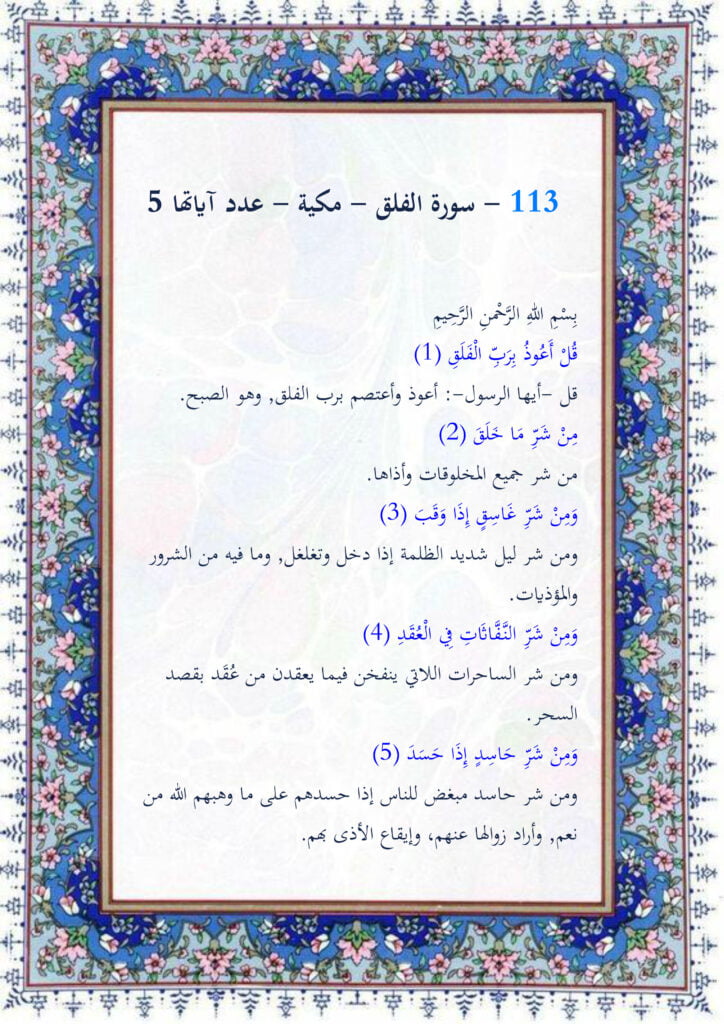 113 – سورة الفلق – مكية – عدد آياتها 5
بِسْمِ اللهِ الرَّحْمنِ الرَّحِيمِ
قُلْ أَعُوذُ بِرَبِّ الْفَلَقِ (1)
قل –أيها الرسول–: أعوذ وأعتصم برب الفلق, وهو الصبح.
مِنْ شَرِّ مَا خَلَقَ (2)
من شر جميع المخلوقات وأذاها.
وَمِنْ شَرِّ غَاسِقٍ إِذَا وَقَبَ (3)
ومن شر ليل شديد الظلمة إذا دخل وتغلغل, وما فيه من الشرور
والمؤذيات.
وَمِنْ شَرِّ النَّفَّاثَاتِ فِي الْعُقَدِ (4)
ومن شر الساحرات اللاتي ينفخن فيما يعقدن من عُقَد بقصد
السحر.
وَمِنْ شَرِّ حَاسِدٍ إِذَا حَسَدَ (5)
ومن شر حاسد مبغض للناس إذا حسدهم على ما وهبهم الله من
نعم, وأراد زوالها عنهم، وإيقاع الأذى بهم.